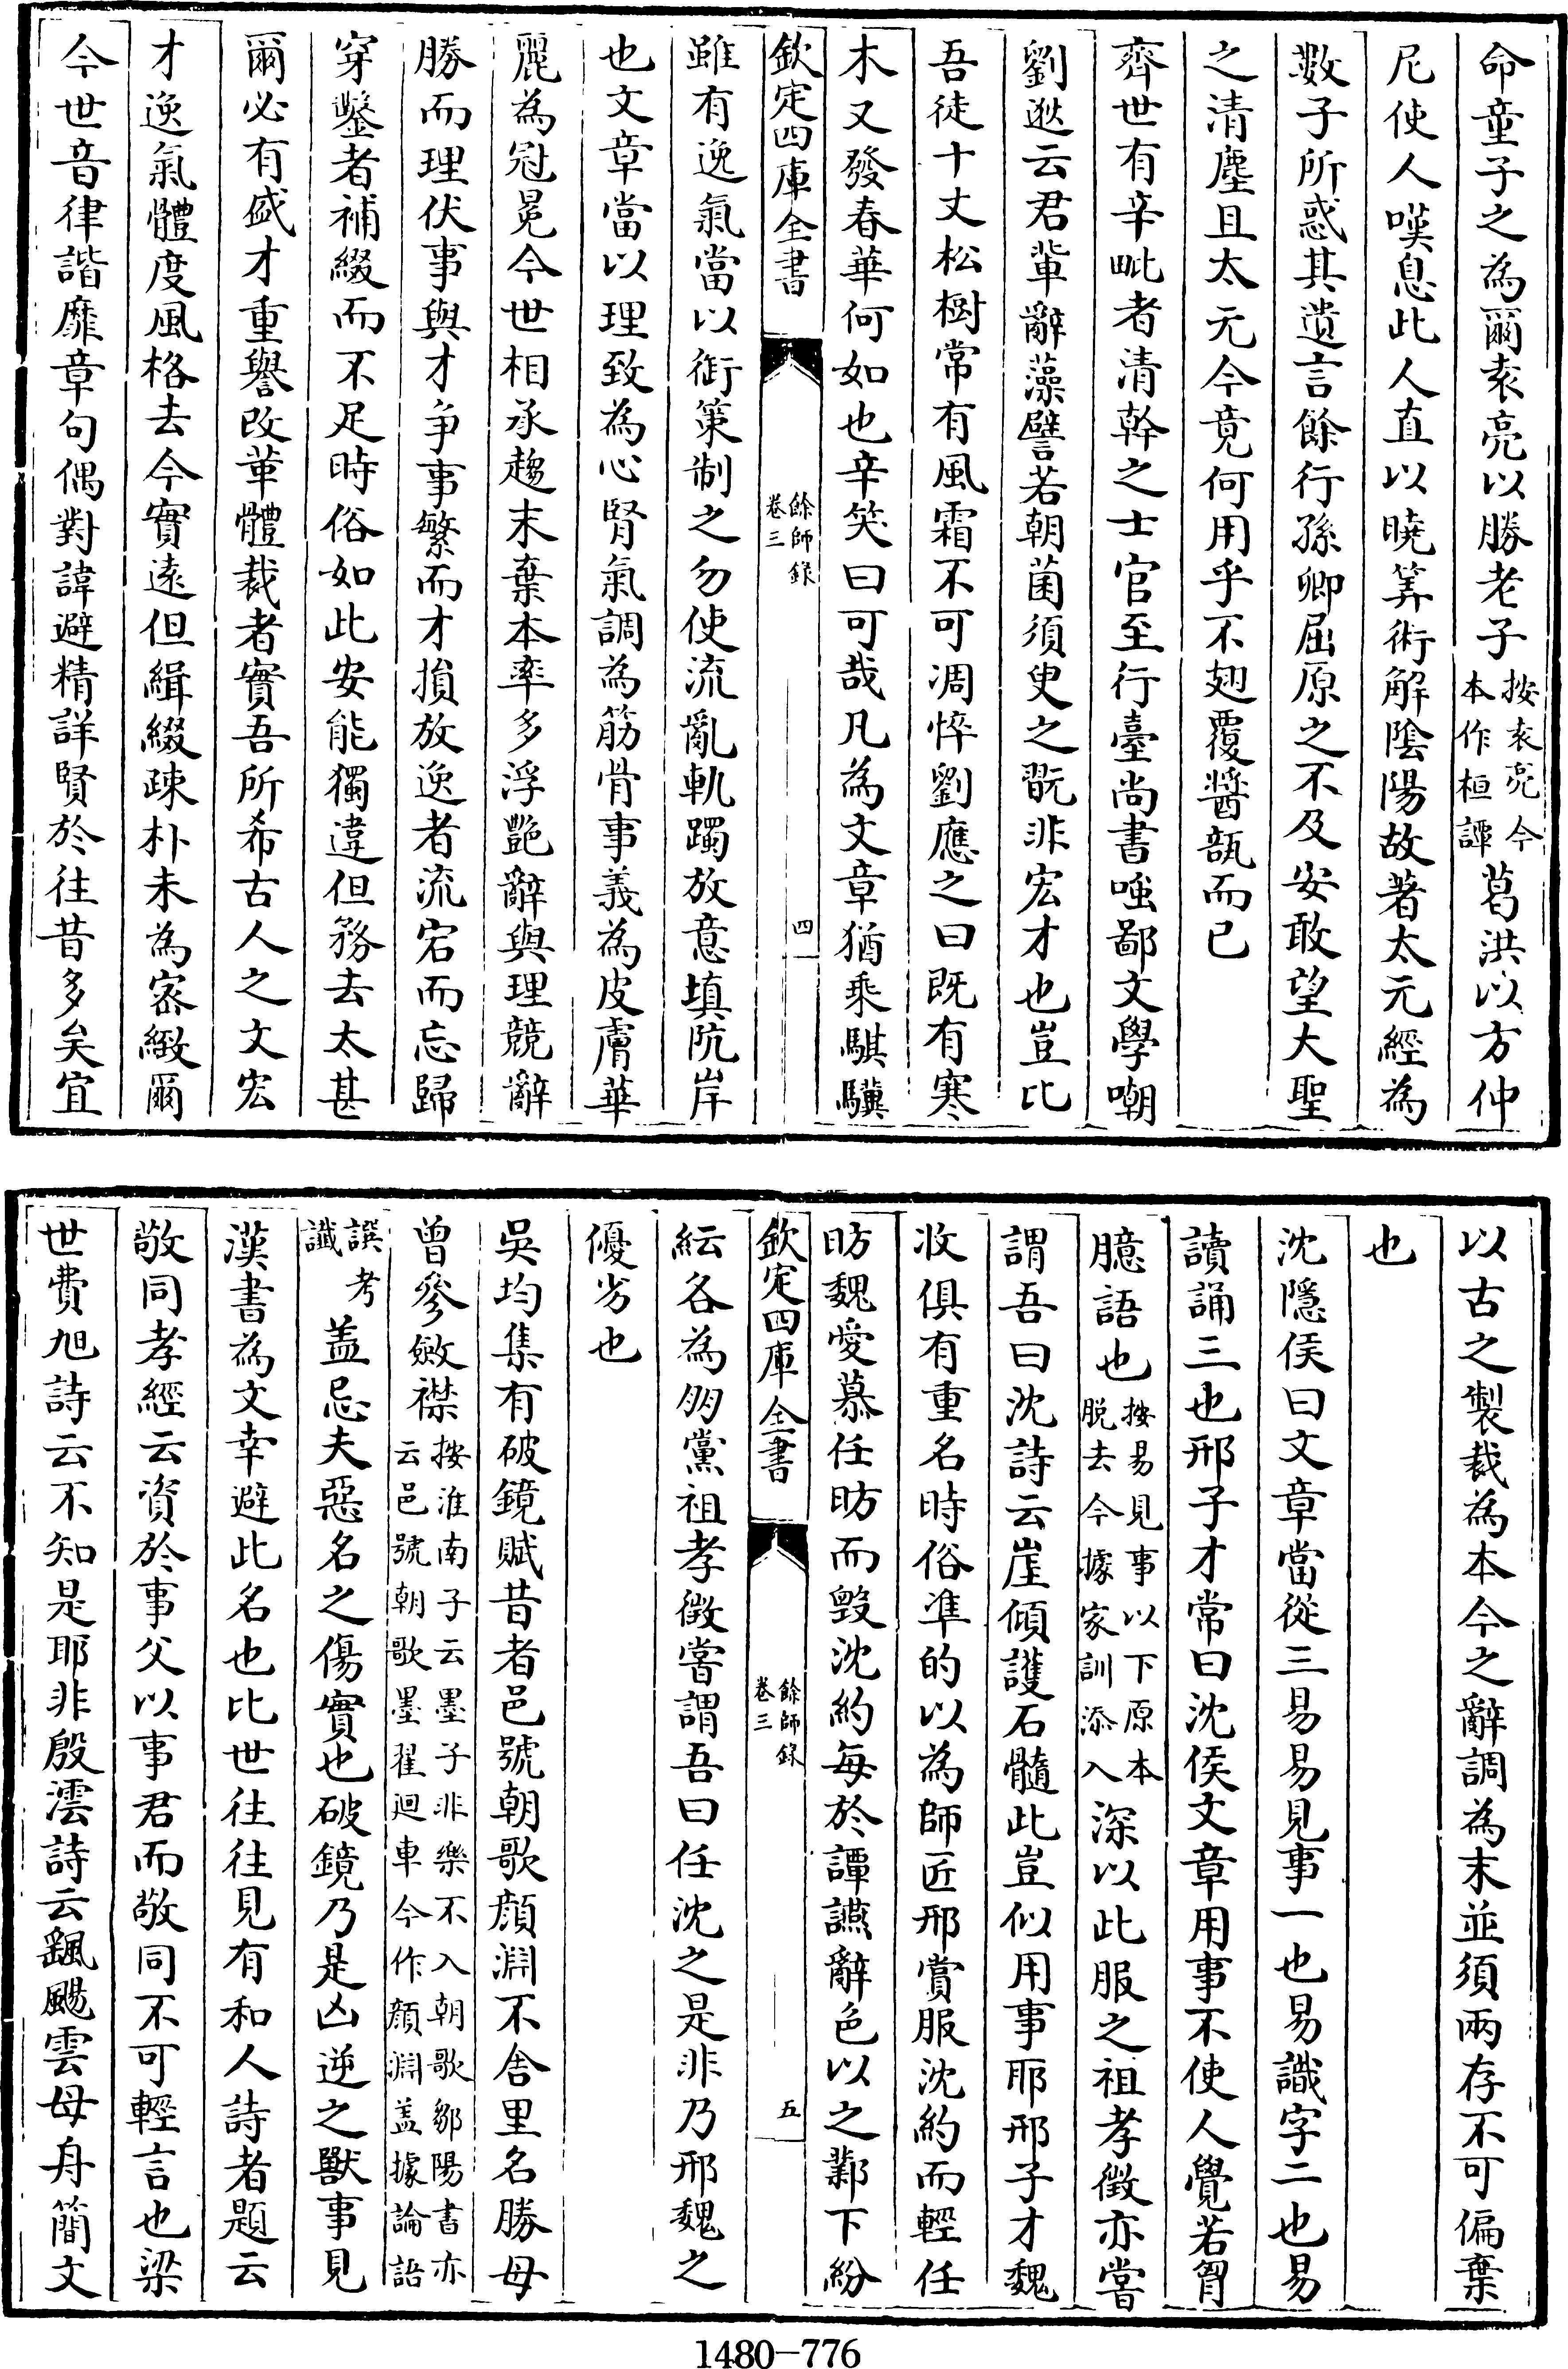 命童子之為爾袁亮以勝老子按袁亮今本作桓譚葛洪以方仲
尼使人嘆息此人直以曉筭術解隂陽故著太元經為
數子所惑其遺言餘行孫卿屈原之不及安敢望大聖
之清塵且太元今竟何用乎不翅覆醬瓿而已
齊世有辛毗者清幹之士官至行臺尚書嗤鄙文學嘲
劉逖云君輩辭藻譬若朝菌須臾之翫非宏才也豈比
吾徒十丈松樹常有風霜不可凋悴劉應之曰既有寒
木又發春華何如也辛笑曰可哉凡為文章猶乘騏驥
欽定四庫全書
餘師錄
卷三
四
雖有逸氣當以銜策制之勿使流亂軌躅放意填阬岸
也文章當以理致為心腎氣調為筋骨事義為皮膚華
麗為冠冕今世相承趨末棄本率多浮艷辭與理競辭
勝而理伏事與才爭事繁而才損放逸者流宕而忘歸
穿鑿者補綴而不足時俗如此安能獨違但務去太甚
爾必有盛才重譽改革體裁者實吾所希古人之文宏
才逸氣體度風格去今實遠但緝綴疎朴未為宻緻爾
今世音律諧靡章句偶對諱避精詳賢於往昔多矣宜
以古之製裁為本今之辭調為末並須兩存不可偏棄
也
沈隱侯曰文章當從三易易見事一也易識字二也易
讀誦三也邢子才常曰沈侯文章用事不使人覺若胷
臆語也按易見事以下原本脫去今據家訓添入深以此服之祖孝徵亦嘗
謂吾曰沈詩云崖傾護石髓此豈似用事耶邢子才魏
收俱有重名時俗凖的以為師匠邢賞服沈約而輕任
昉魏愛慕任昉而毀沈約每於譚讌辭色以之鄴下紛
欽定四庫全書
餘師錄
卷三
五
紜各為朋黨祖孝徵嘗謂吾曰任沈之是非乃邢魏之
優劣也
吳均集有破鏡賦昔者邑號朝歌顔淵不舍里名勝母
曾參斂襟按淮南子云墨子非樂不入朝歌鄒陽書亦云邑號朝歌墨翟廻車今作顔淵盖據論語
譔考讖盖忌夫惡名之傷實也破鏡乃是凶逆之獸事見
漢書為文幸避此名也比世往往見有和人詩者題云
敬同孝經云資於事父以事君而敬同不可輕言也梁
世費旭詩云不知是耶非殷澐詩云颻颺雲母舟簡文
1480-776